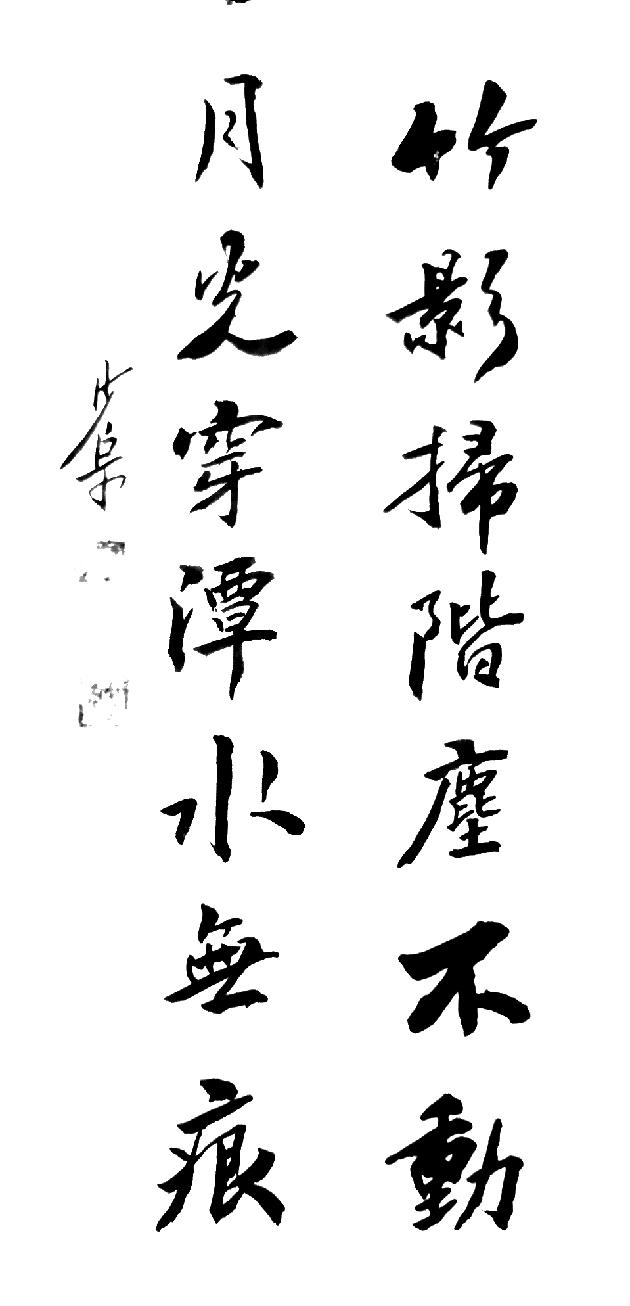 竹影掃階塵不動
月光穿潭水無痕